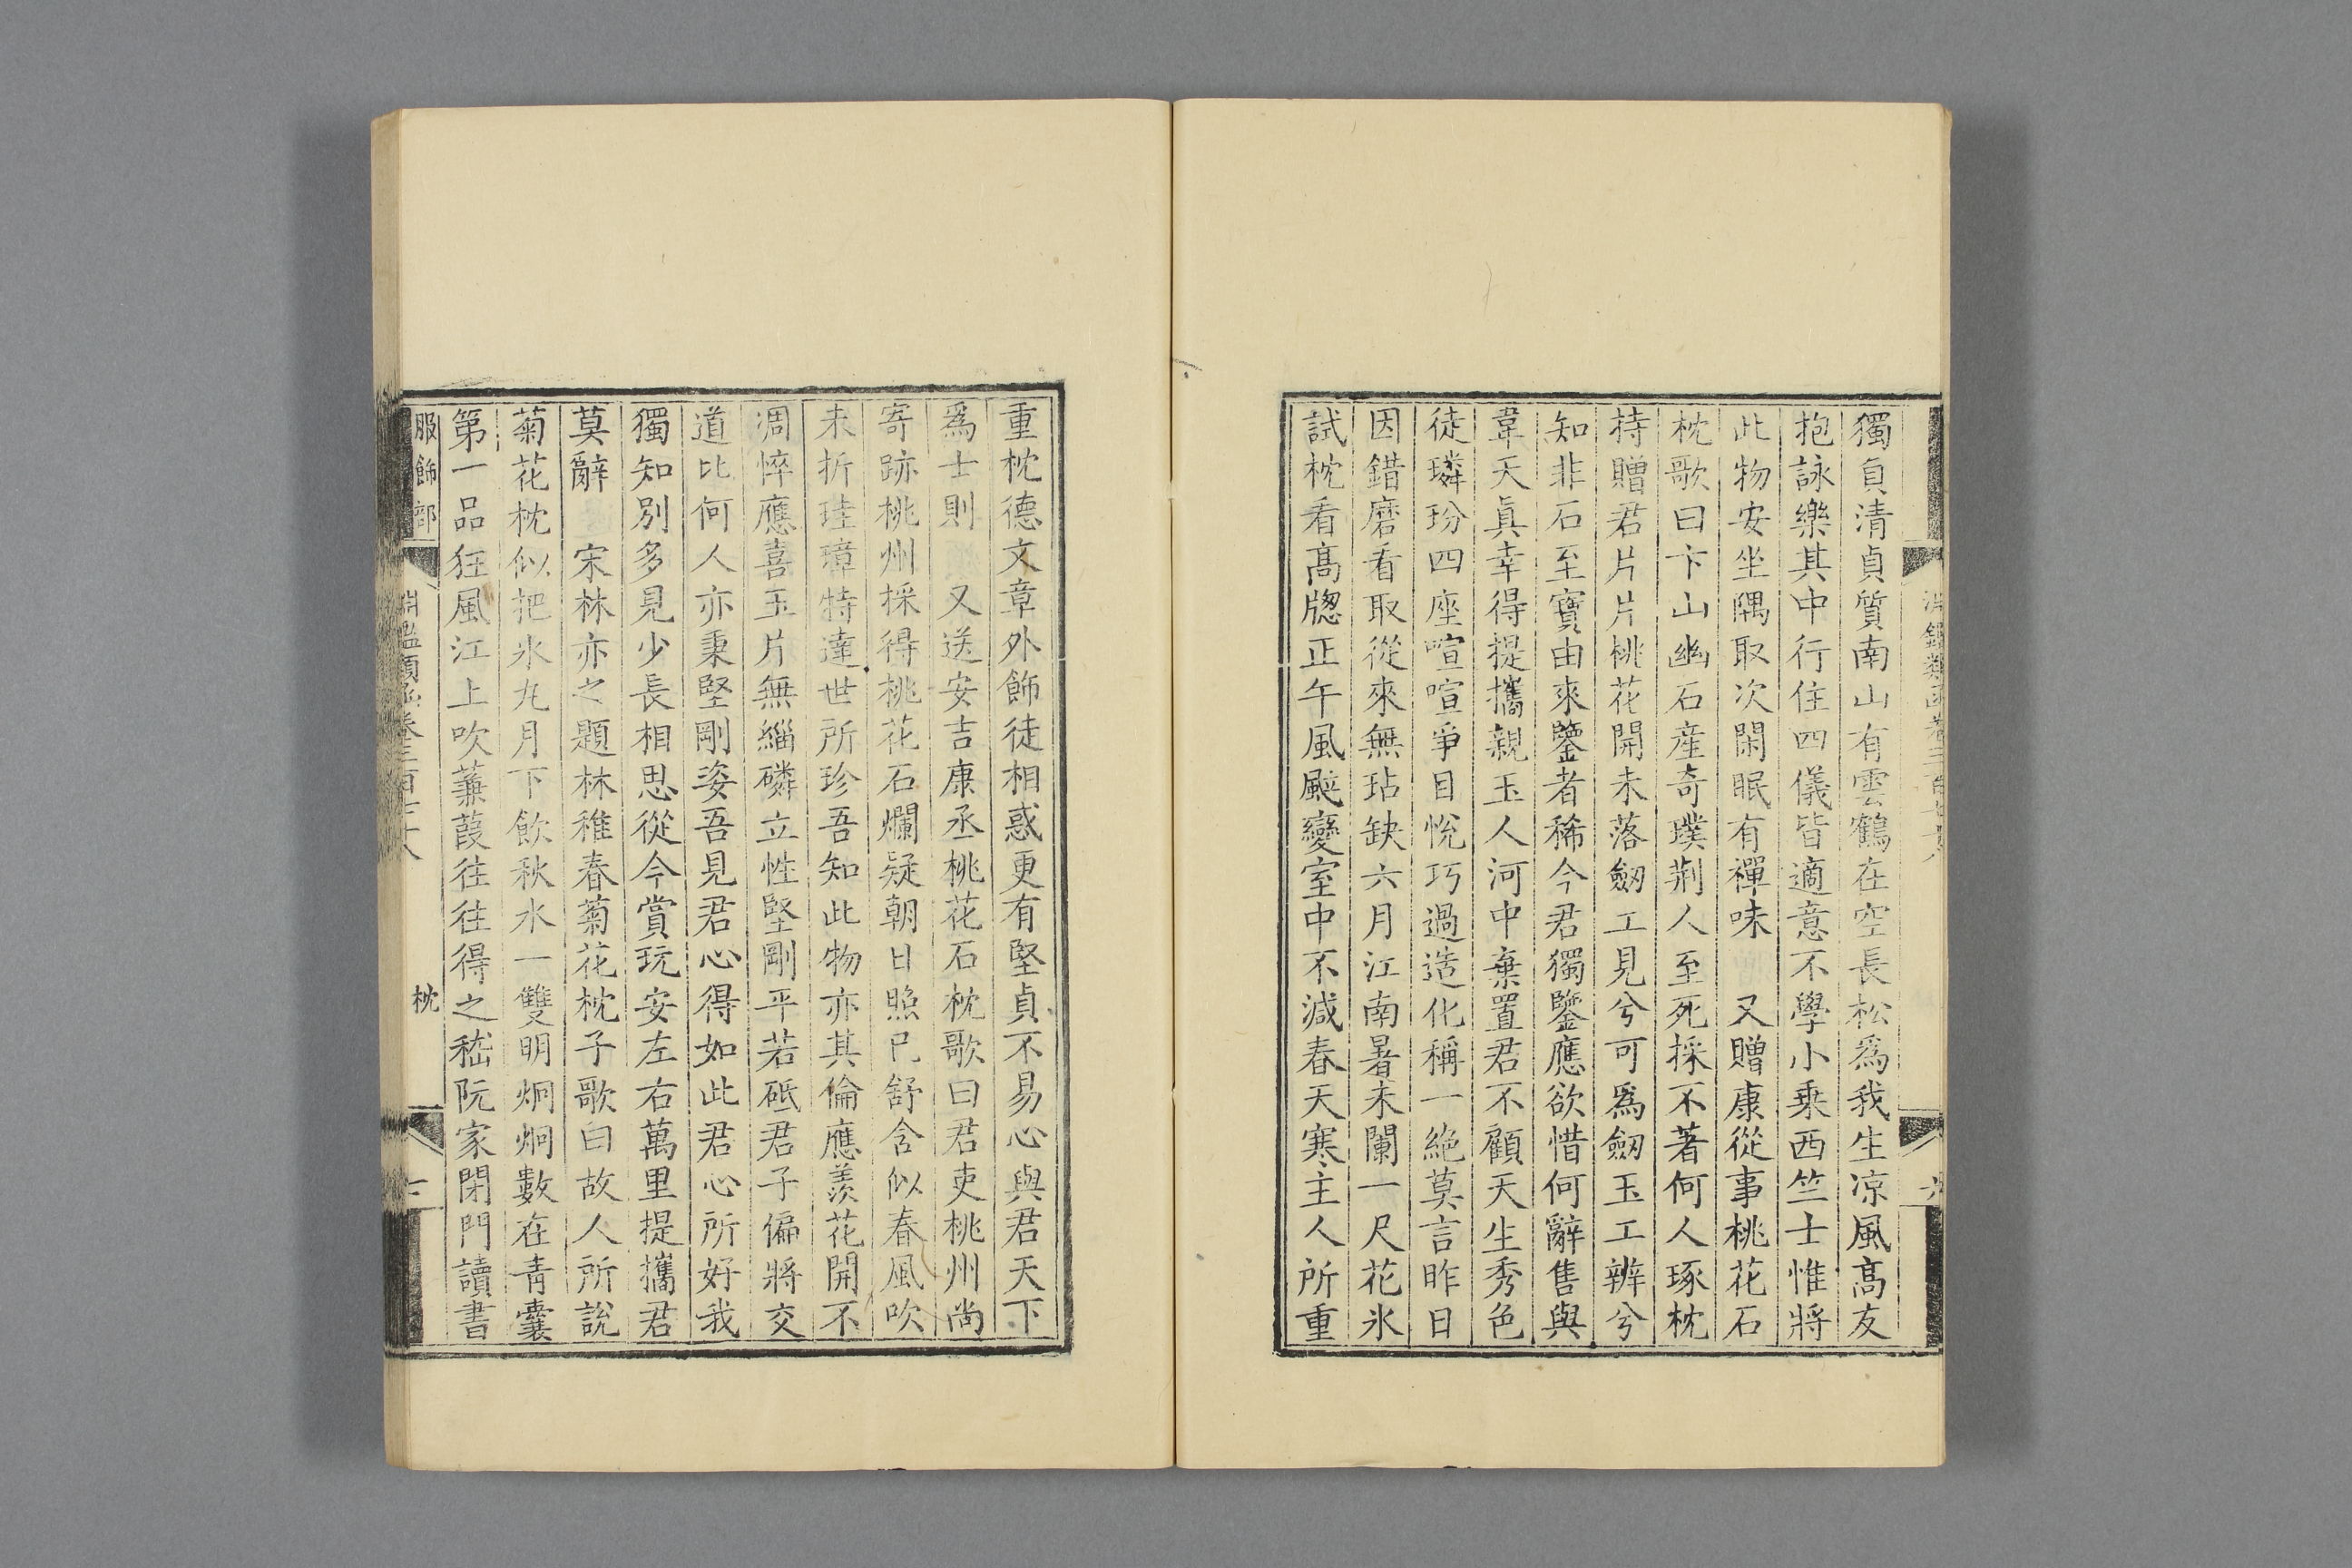 獨負清貞質南山有雲鶴在空長松爲我生凉風高友
抱詠樂其中行住四儀皆適意不學小乗西竺士惟將
此物安坐隅取次閑眠有禪味　又贈康從事桃花石
枕歌曰卞山幽石産奇璞荆人至死採不著何人琢枕
持贈君片片桃花開未落劒工見兮可爲劒玉工辨兮
知非石至寶由來鑒者稀今君獨鑒應欲惜何辭售與
韋天眞幸得提攜親玉人河中棄置君不顧天生秀色
徒璘玢四座喧喧爭目悅巧過造化稱一絶莫言昨日
因錯磨看取從來無玷缺六月江南暑未闌一尺花氷
試枕看高牎正午風颼變室中不減春天寒主人所重
重枕德文章外飾徒相惑更有堅貞不易心與君天下
爲士則　又送安吉康丞桃花石枕歌曰君吏桃州尚
寄跡桃州採得桃花石爛疑朝日照已舒含似春風吹
未折珪璋特達世所珍吾知此物亦其倫應羨花開不
凋悴應喜玉片無緇磷立性堅剛平若砥君子偏將交
道比何人亦秉堅剛姿吾見君心得如此君心所好我
獨知別多見少長相思從今賞玩安左右萬里提攜君
莫辭　宋林亦之題林稚春菊花枕子歌曰故人所說
菊花枕似把氷丸月下飲秋水一雙明炯炯數在青囊
第一品狂風江上吹蒹葭往往得之嵇阮家閉門讀書
服飾部　淵鑑類函卷三百七十八　枕